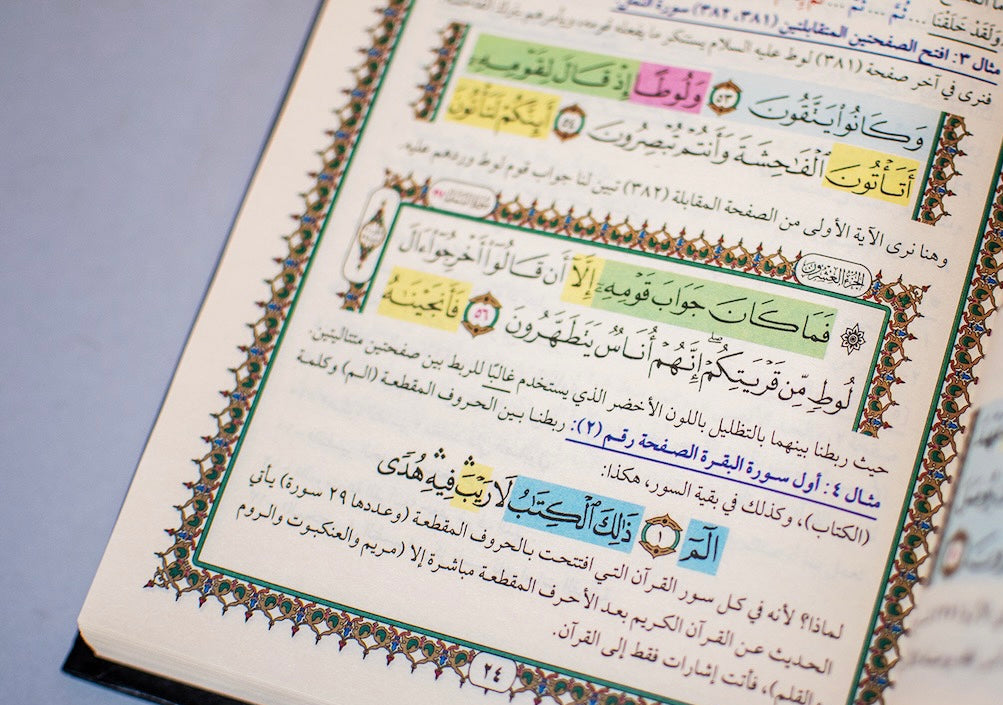 ثُمَّ ... ثُمَّ ...
وَلَقَدْ خَلَقْنَا
مثال ٣: افتح الصفحتين المتقابلتين (٣٨١، ٣٨٢) سورة النمل:
فنرى في آخر صفحة (٣٨١) لوط عليه السلام يستنكر ما يفعله قومه، ويأمرهم بترك
وَكَانُوا۟ يَتَّقُونَ ٥٣ وَلُوطًا إِذْ قَالَ لِقَوْمِهِۦٓ
أَتَأْتُونَ ٱلْفَٰحِشَةَ وَأَنتُمْ تُبْصِرُونَ ٥٤ أَئِنَّكُمْ لَتَأْتُونَ
وهنا نرى الآية الأولى من الصفحة المقابلة (٣٨٢) تبين لنا جواب قوم لوط وردهم عليه.
الجزء العشرون
فَمَا كَانَ جَوَابَ قَوْمِهِۦٓ إِلَّآ أَن قَالُوٓا۟ أَخْرِجُوٓا۟ ءَالَ
لُوطٍ مِّن قَرْيَتِكُمْ ۖ إِنَّهُمْ أُنَاسٌ يَتَطَهَّرُونَ ٥٦ فَأَنجَيْنَٰهُ
حيث ربطنا بينهما بالتظليل باللون الأخضر الذي يستخدم غالبًا للربط بين صفحتين متتاليتين.
مثال ٤: أول سورة البقرة الصفحة رقم (٢): ربطنا بين الحروف المقطعة (الم) وكلمة
(الكتاب)، وكذلك في بقية السور، هكذا:
الٓمٓ ١ ذَٰلِكَ ٱلْكِتَٰبُ لَا رَيْبَ ۛ فِيهِ ۛ هُدًى
لماذا؟ لأنه في كل سور القرآن التي افتتحت بالحروف المقطعة (وعددها ٢٩ سورة) يأتي
الحديث عن القرآن الكريم بعد الأحرف المقطعة مباشرة إلا (مريم والعنكبوت والروم
والقلم)، فأتت إشارات فقط إلى القرآن.
٢٤